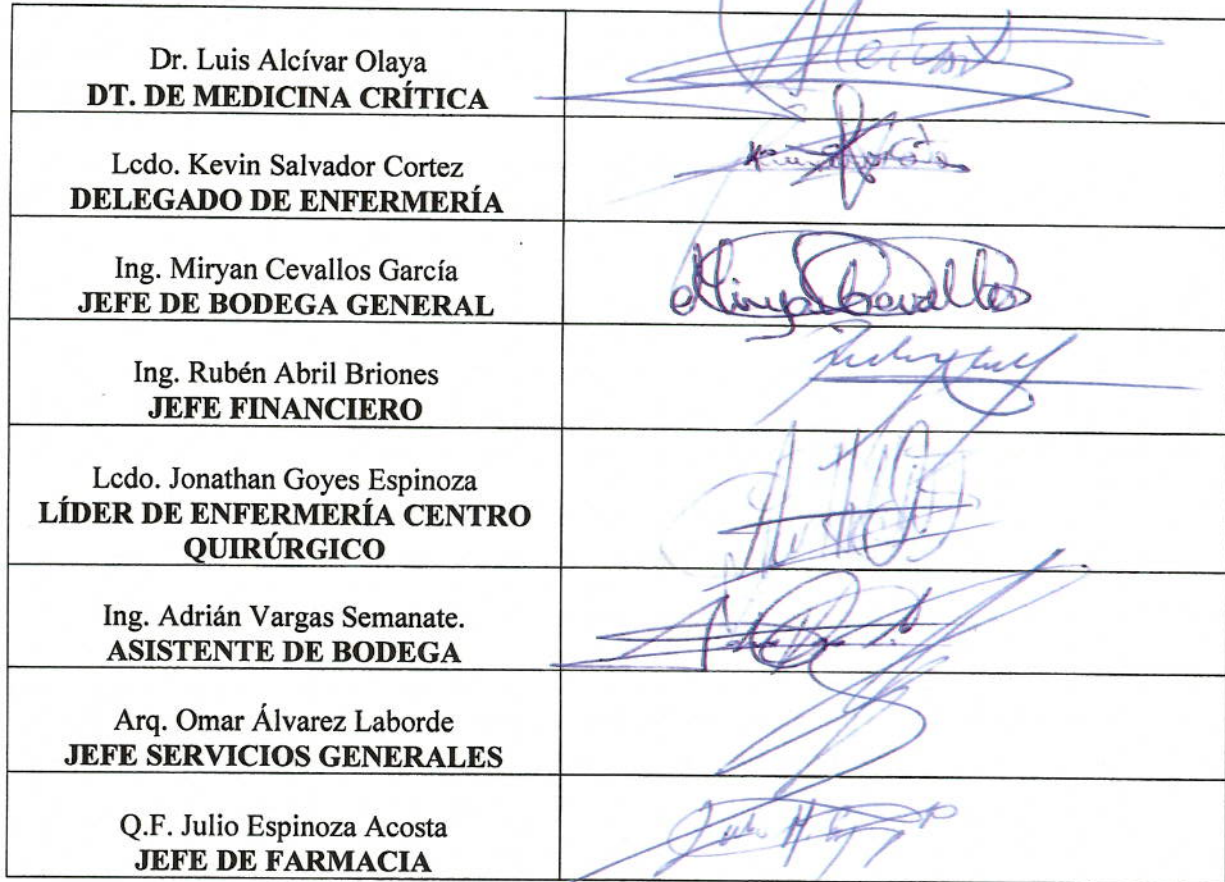 Dr. Luis Alcívar Olaya
DT. DE MEDICINA CRÍTICA
Lcdo. Kevin Salvador Cortez
DELEGADO DE ENFERMERÍA
Ing. Miryan Cevallos García
JEFE DE BODEGA GENERAL
Ing. Rubén Abril Briones
JEFE FINANCIERO
Lcdo. Jonathan Goyes Espinoza
LÍDER DE ENFERMERÍA CENTRO
QUIRÚRGICO
Ing. Adrián Vargas Semanate.
ASISTENTE DE BODEGA
Arq. Omar Álvarez Laborde
JEFE SERVICIOS GENERALES
Q.F. Julio Espinoza Acosta
JEFE DE FARMACIA